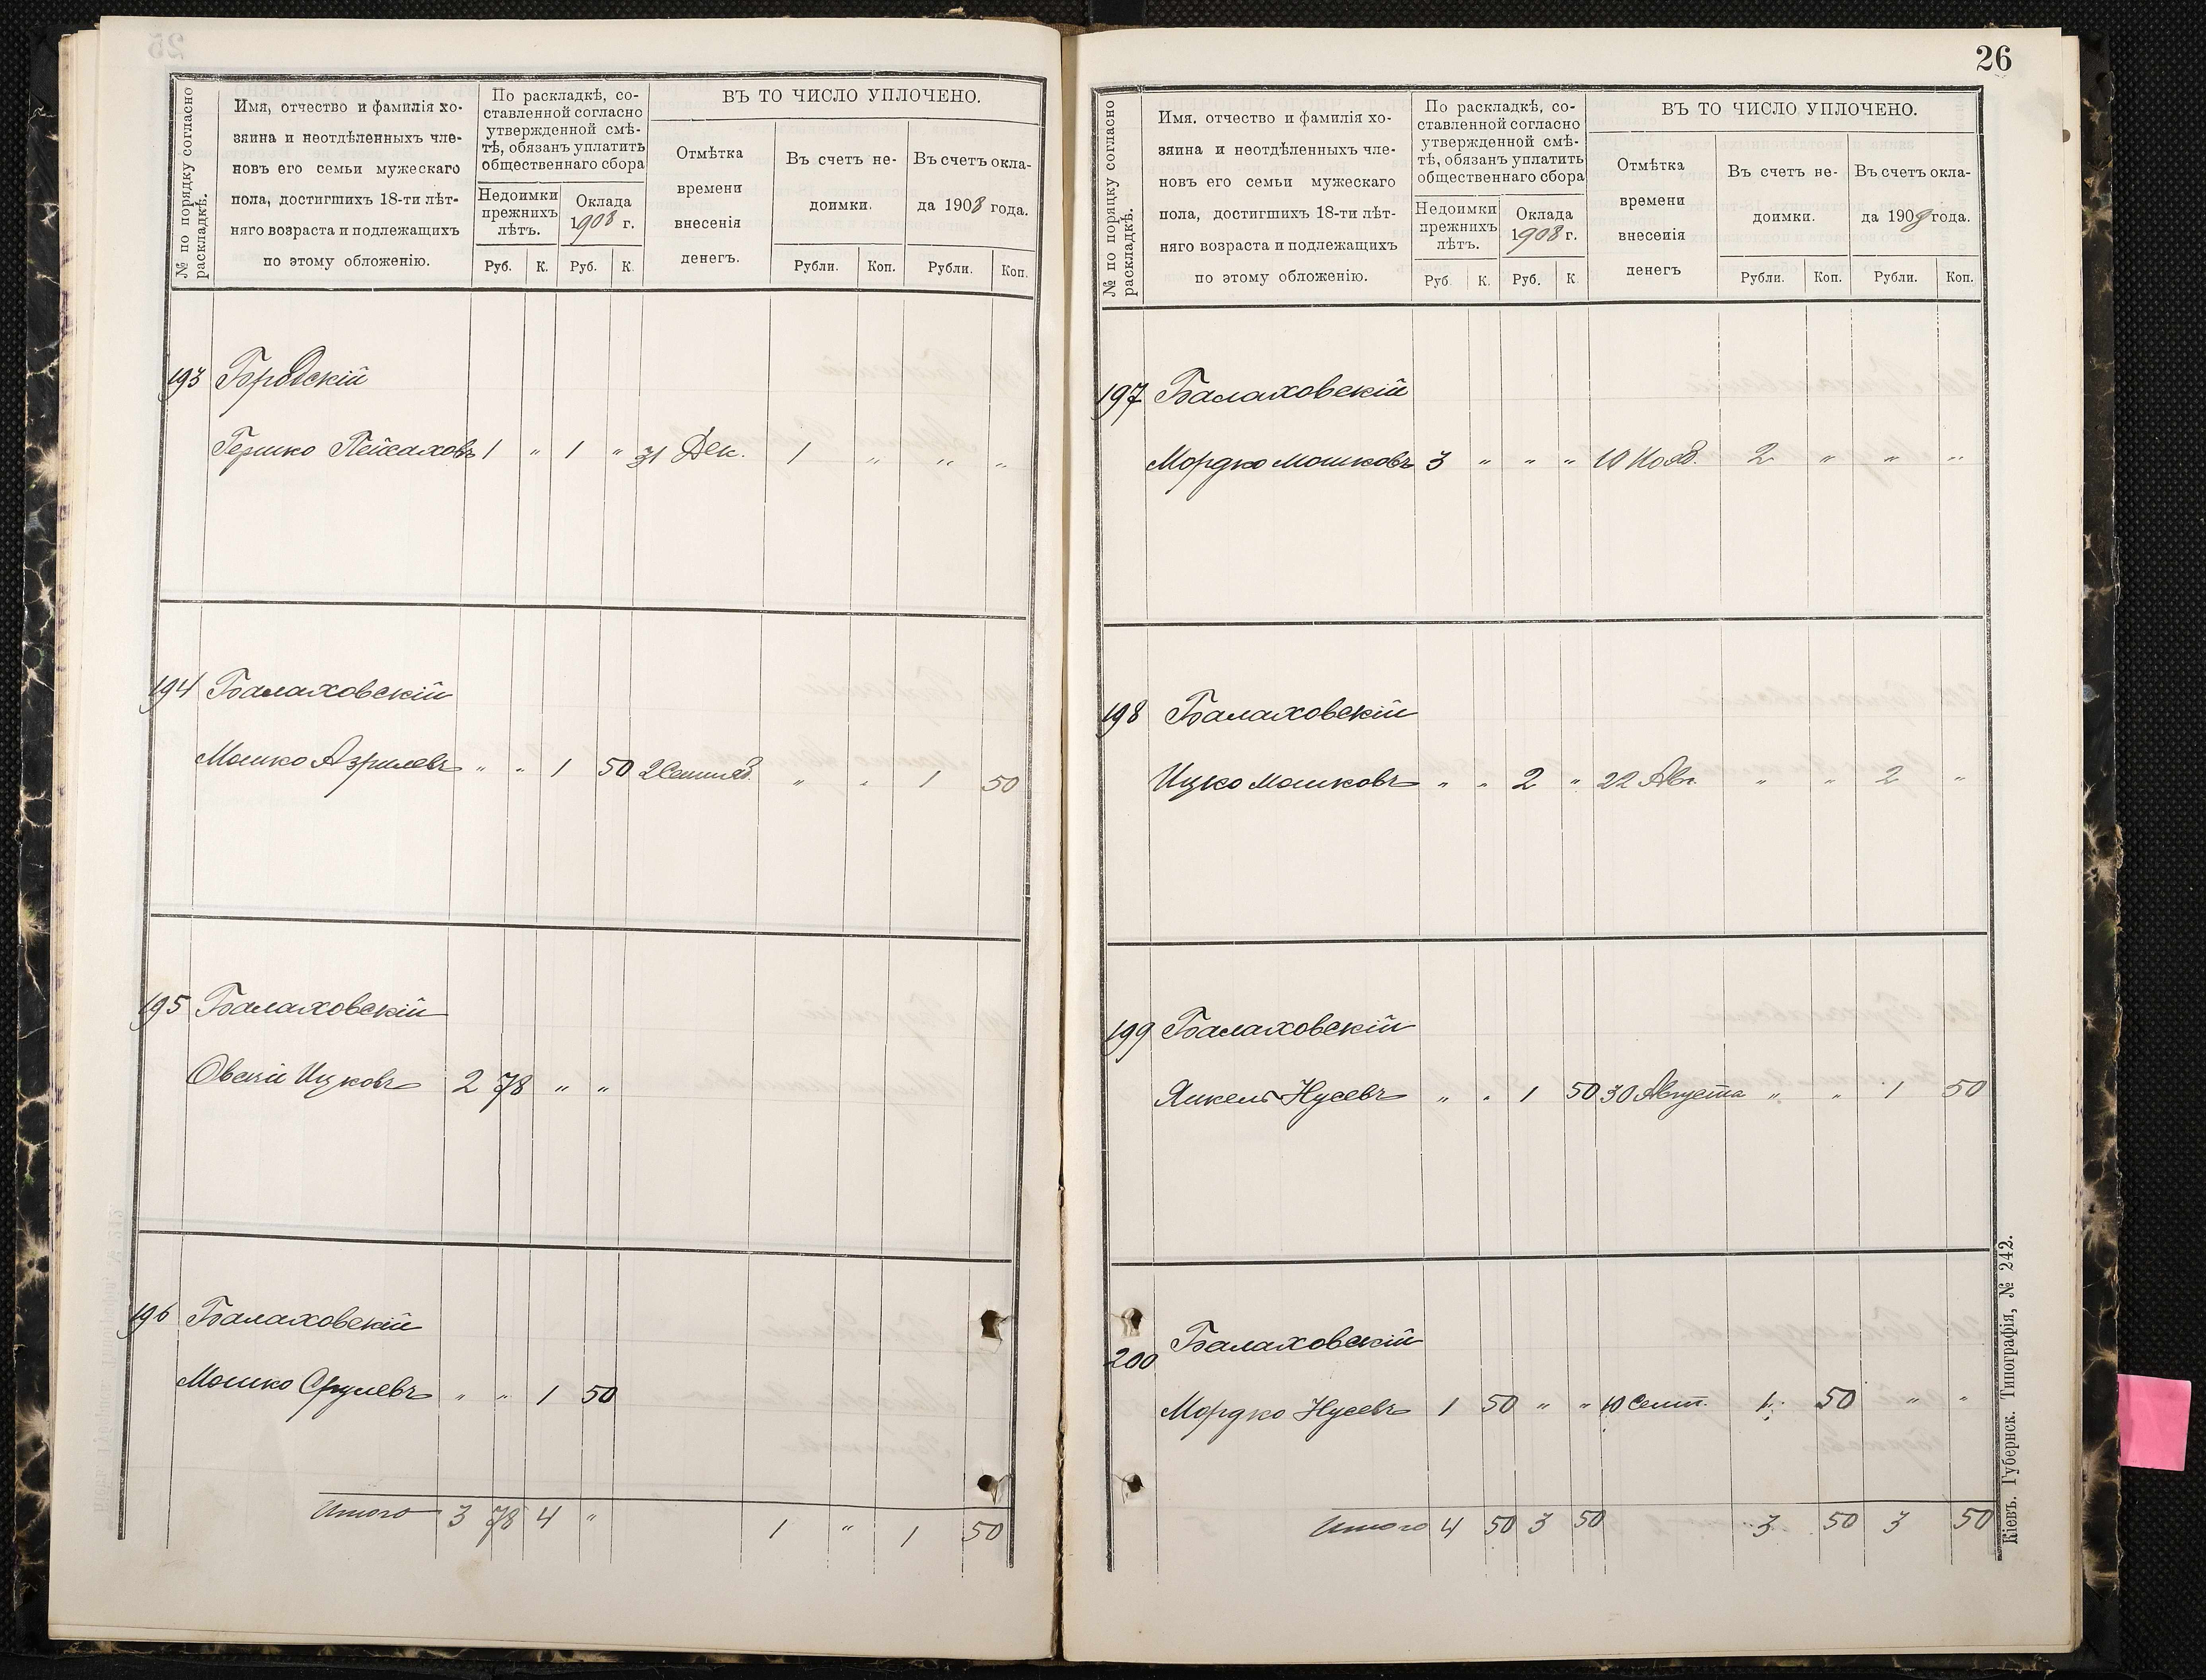 № по порядку согласно
раскладкѣ.
Имя, отчество и фамилія хо-
зяина и неотдѣленныхъ чле-
новъ его семьи мужескаго
пола, достигшихъ 18-ти лѣт-
няго возраста и подлежащихъ
по этому обложенію.
По раскладкѣ, со-
ставленной согласно
утвержденной смѣ-
тѣ, обязанъ уплатить
общественнаго сбора
Недоимки
прежнихъ
лѣтъ.
Оклада
1908 г.
Руб. К. Руб. К.
ВЪ ТО ЧИСЛО УПЛОЧЕНО.
Отмѣтка
времени
внесенія
денегъ.
Въ счетъ не-
доимки.
Въ счетъ окла-
да 1908 года.
Рубли. Коп. Рубли. Коп.
193 Бродскій
Гершко Пейсаховъ 1 " 1 " 31 Дек. 1 " " "
194 Балаховскій
Мошко Азрилевъ " " 1 50 2 Сентяб. " " 1 50
195 Балаховскій
Овсій Ицковъ 2 78 " "
196 Балаховскій
Мошко Срулевъ " " 1 50
Итого 3 78 4 " 1 " 1 50
26
№ по порядку согласно
раскладкѣ.
Имя. отчество и фамилія хо-
зяина и неотдѣленныхъ чле-
новъ его семьи мужескаго
пола, достигшихъ 18-ти лѣт-
няго возраста и подлежащихъ
по этому обложенію.
По раскладкѣ, со-
ставленной согласно
утвержденной смѣ-
тѣ, обязанъ уплатить
общественнаго сбора
Недоимки
прежнихъ
лѣтъ.
Оклада
1908 г.
Руб. К. Руб. К.
ВЪ ТО ЧИСЛО УПЛОЧЕНО.
Отмѣтка
времени
внесенія
денегъ
Въ счетъ не-
доимки.
Въ счетъ окла-
да 1908 года.
Рубли. Коп. Рубли. Коп.
197 Балаховскій
Мордко Мошковъ 3 " " " 10 Нояб. 2 " " "
198 Балаховскій
Ицко Мошковъ " " 2 " 22 Авг. " " 2 "
199 Балаховскій
Янкель Нусевъ " " 1 50 30 Августа " " 1 50
200 Балаховскій
Мордко Нусевъ 1 50 " " 10 Сент. 1 50 " "
Итого 4 50 3 50 3 50 3 50
Кіевъ. Губернск. Типографія, № 242.